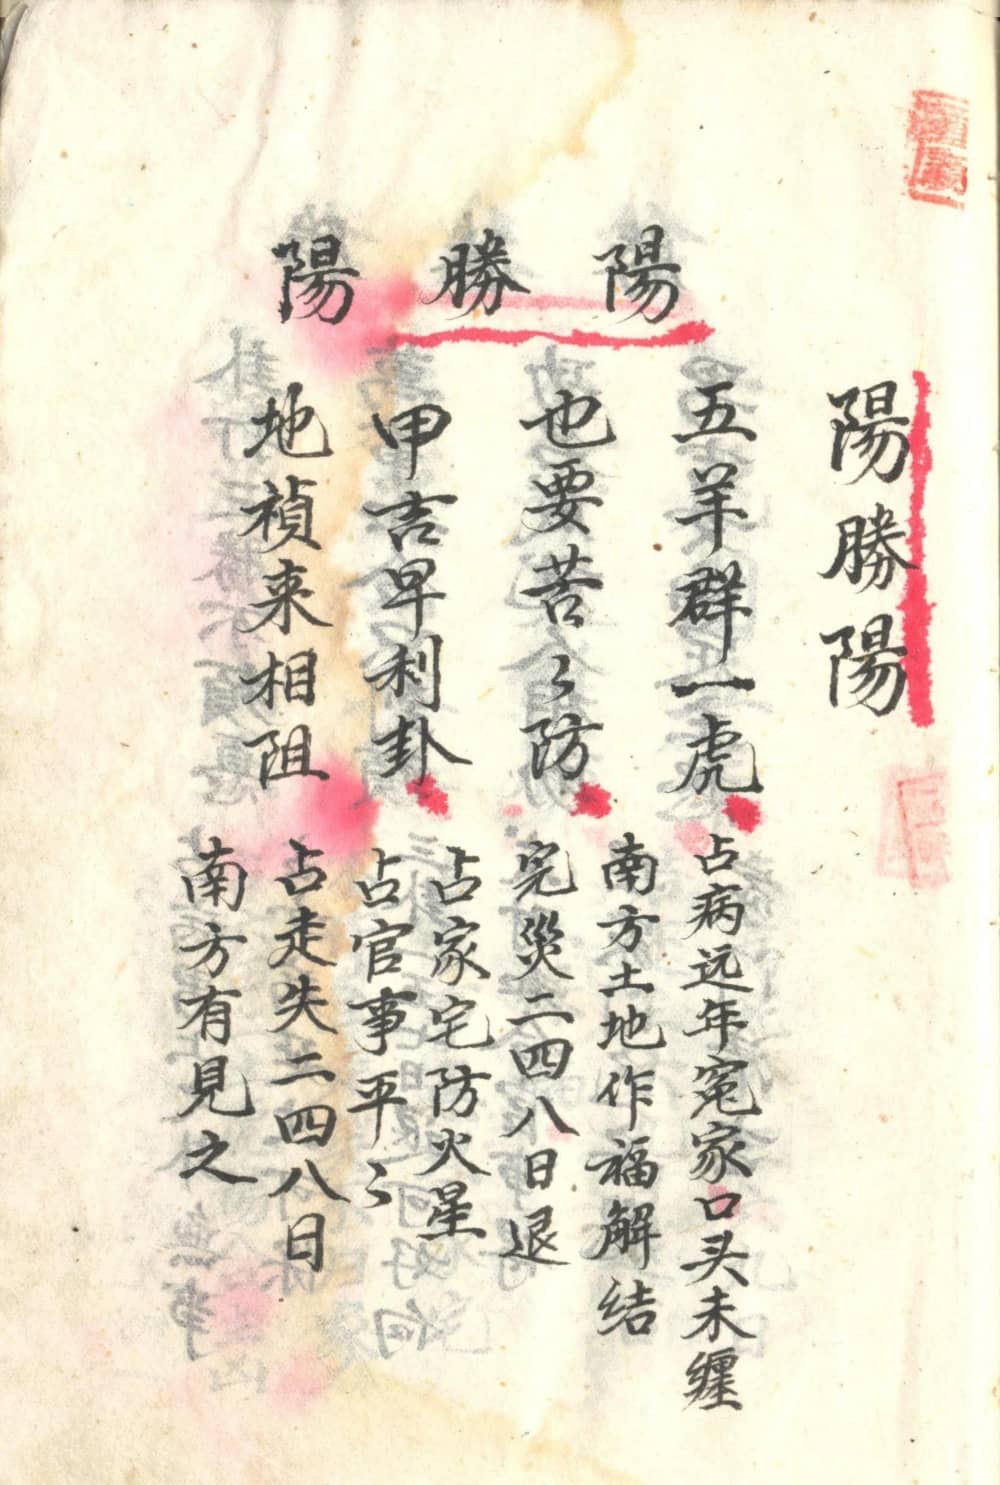 陽勝陽
陽勝陽
五羊群一虎
也要苦〻防
甲吉早利卦
地禎来相阻
占病远年冤家口头未缠
南方土地作福解结
完災二四八日退
占家宅防火星
占官事平〻
占走失二四八日
南方有見之